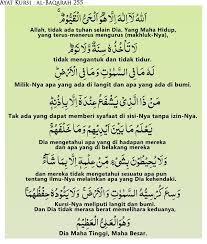 AYAT KURSI : AL-BAQARAH 255
اللَّهُ لَا إِلَٰهَ إِلَّا هُوَ الْحَيُّ الْقَيُّومُ
Allah, tidak ada tuhan selain Dia. Yang Maha Hidup,
yang terus-menerus mengurus (makhluk-Nya),
لَا تَأْخُذُهُ سِنَةٌ وَلَا نَوْمٌ
tidak mengantuk dan tidak tidur.
لَهُ مَا فِي السَّمَوَاتِ وَمَا فِي الْأَرْضِ
Milik-Nya apa yang ada di langit dan apa yang ada di bumi.
مَنْ ذَا الَّذِي يَشْفَعُ عِنْدَهُ إِلَّا بِإِذْنِهِ
Tak ada yang dapat memberi syafaat di sisi-Nya tanpa izin-Nya.
يَعْلَمُ مَا بَيْنَ أَيْدِيهِمْ وَمَا خَلْفَهُمْ
Dia mengetahui apa yang di hadapan mereka
dan apa yang di belakang mereka
وَلَا يُحِيطُونَ بِشَيْءٍ مِنْ عِلْمِهِ إِلَّا بِمَا شَاءَ
dan mereka tidak mengetahui sesuatu apa pun
tentang ilmu-Nya melainkan apa yang Dia kehendaki.
وَسِعَ كُرْسِيُّهُ السَّمَوَاتِ وَالْأَرْضَ وَلَا يَئُودُهُ حِفْظُهُمَا
Kursi-Nya meliputi langit dan bumi.
Dan Dia tidak merasa berat memelihara keduanya,
وَهُوَ الْعَلِيُّ الْعَظِيمُ
Dia Maha Tinggi, Maha Besar.